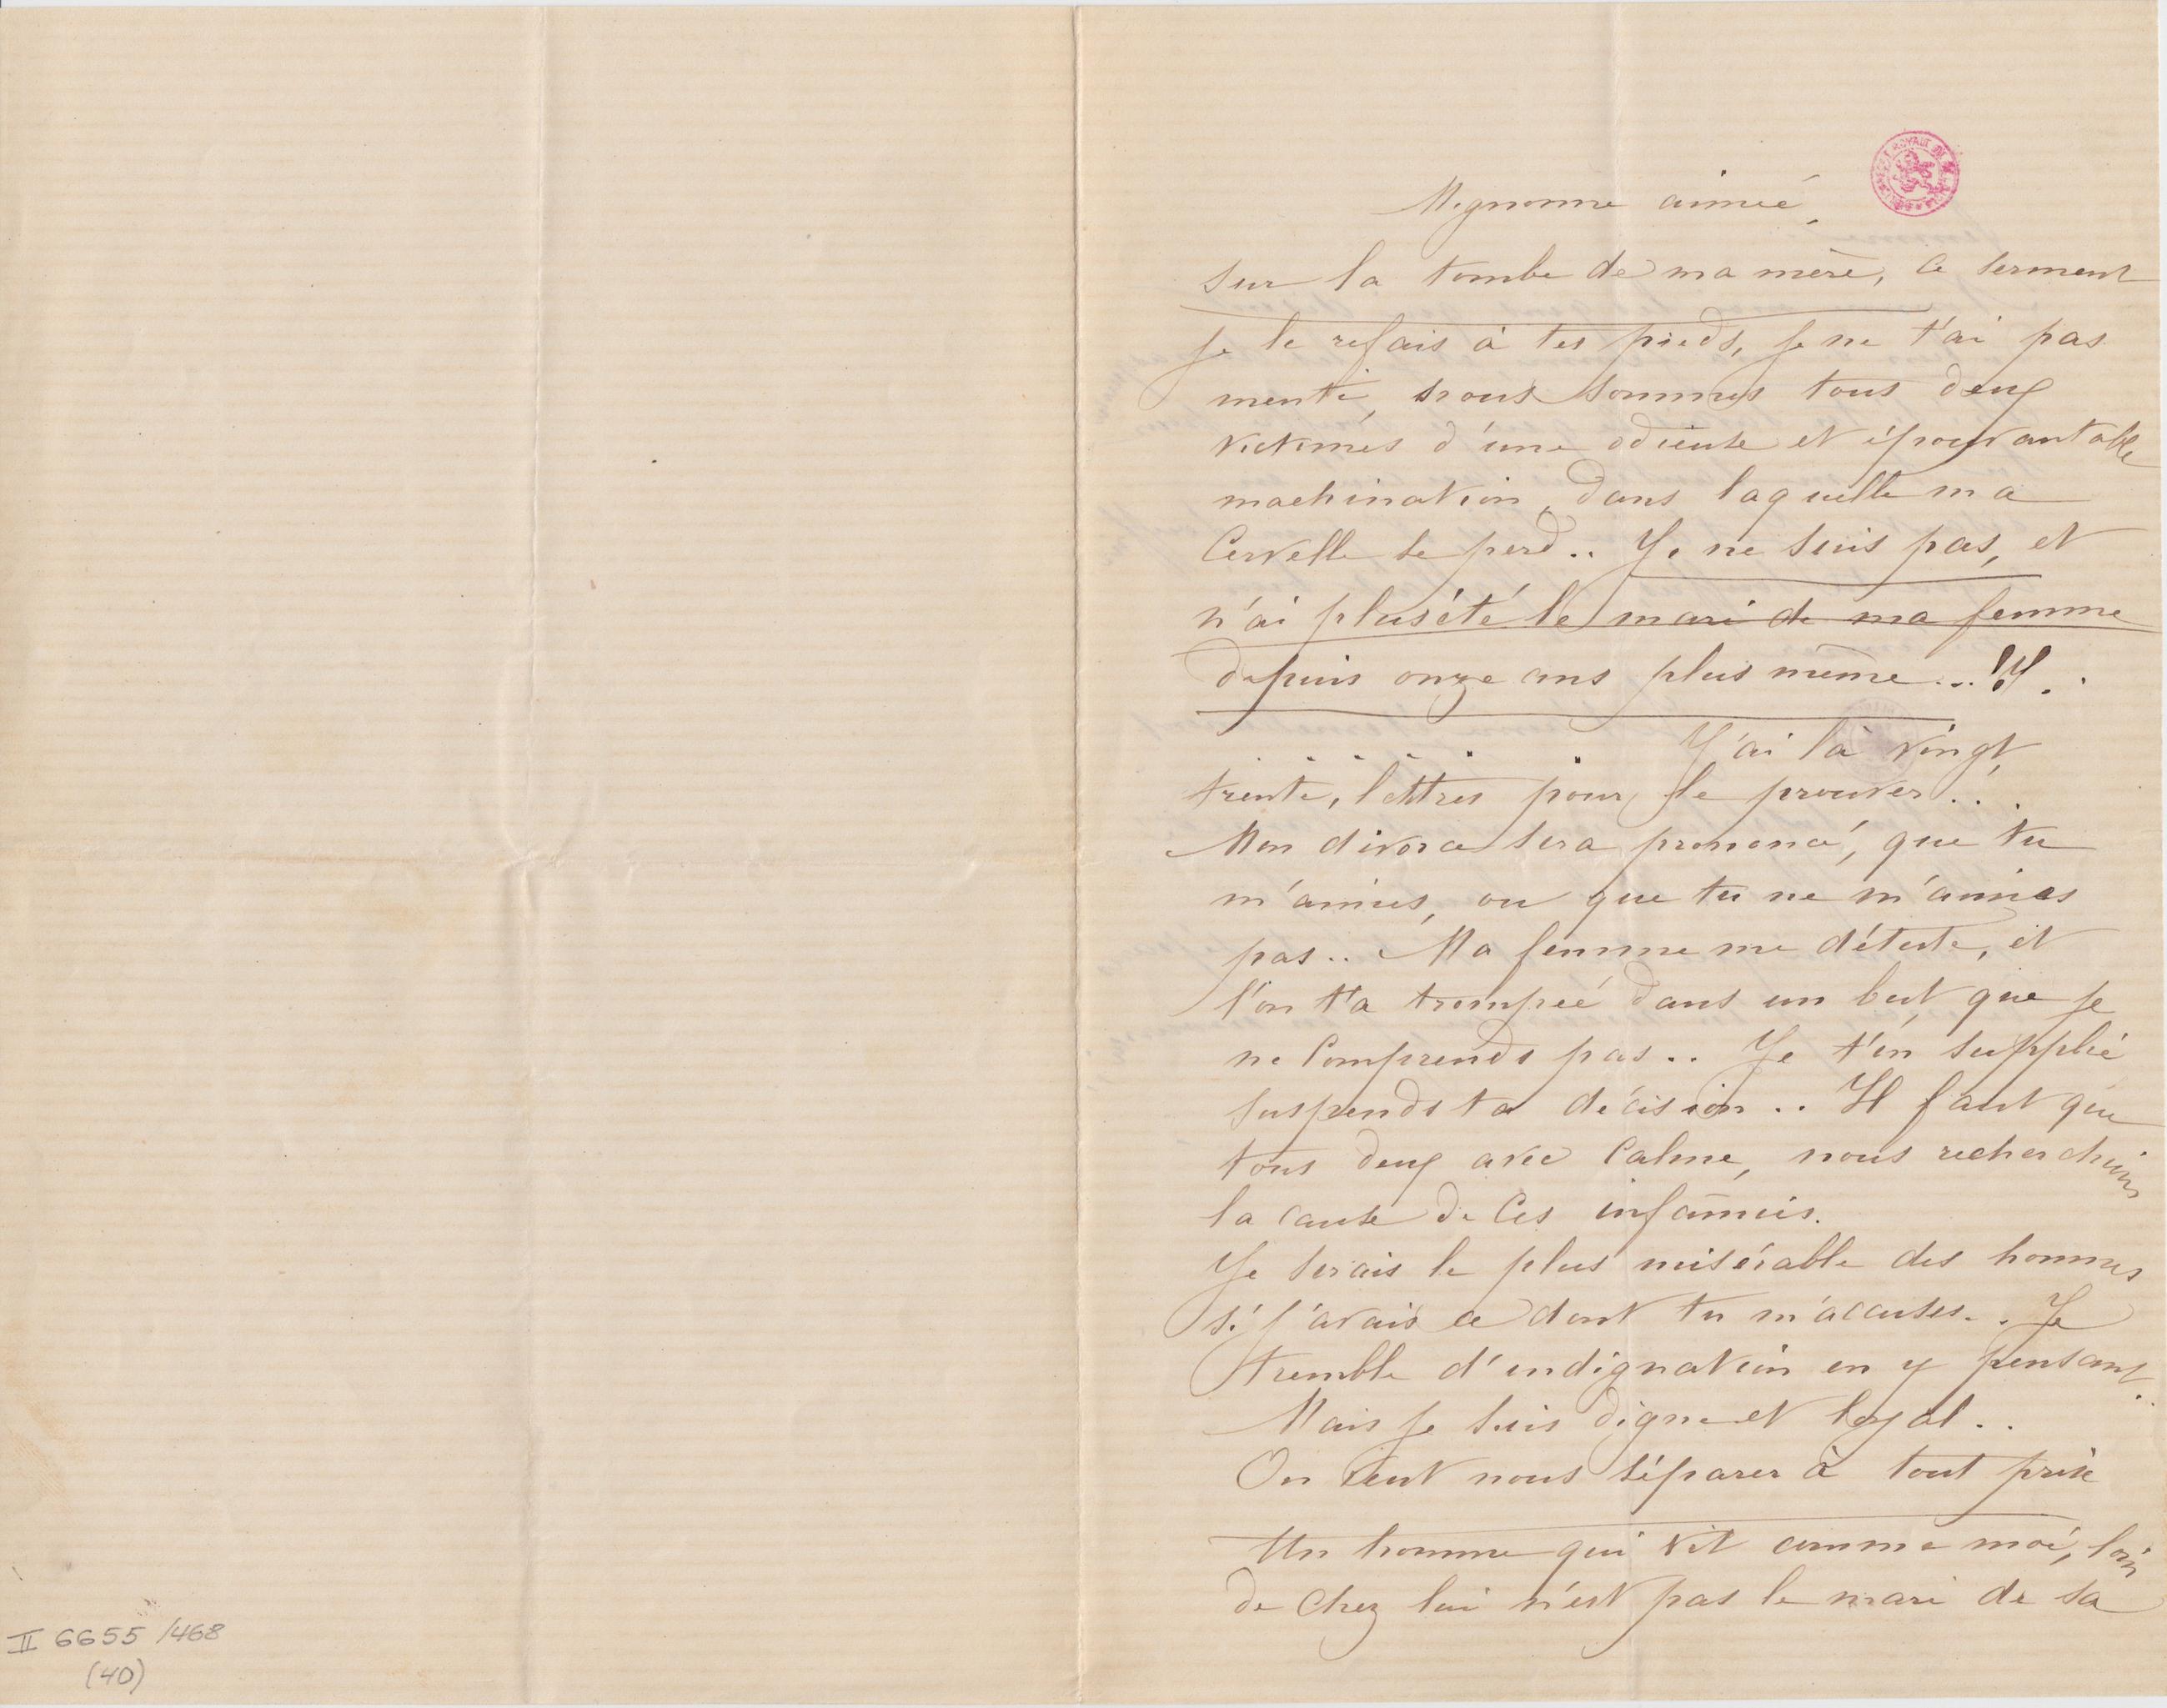 Mignonne aimée,
Sur la tombe de ma mère, ce serment
je le refais à tes pieds, je ne t'ai pas
menti, nous sommes tous deux
victimes d'une odieuse et épouvantable
machination, dans laquelle ma
Cervelle se perd.. Je ne suis pas, et
n'ai plus été le mari de ma femme
depuis onze ans plus même...!!! .
. . . . . . J'ai là vingt,
trente, lettres pour le prouver...
Mon divorce sera prononcé, que tu
m'aimes, ou que tu ne m'aimes
pas.. Ma femme me déteste, et
l'on t'a trompée dans un but que je
ne Comprends pas.. Je t'en supplie
suspends ta décision.. Il faut que
tous deux avec Calme, nous recherchions
la cause de Ces infamies.
Je serais le plus misérable des hommes
si j'avais ce dont tu m'accuses.. Je
tremble d'indignation en y pensant..
Mais je suis digne et loyal..
On veut nous séparer à tout prix
Un homme qui vit comme moi, loin
de Chez lui n'est pas le mari de sa
II 6655 /468
(40)